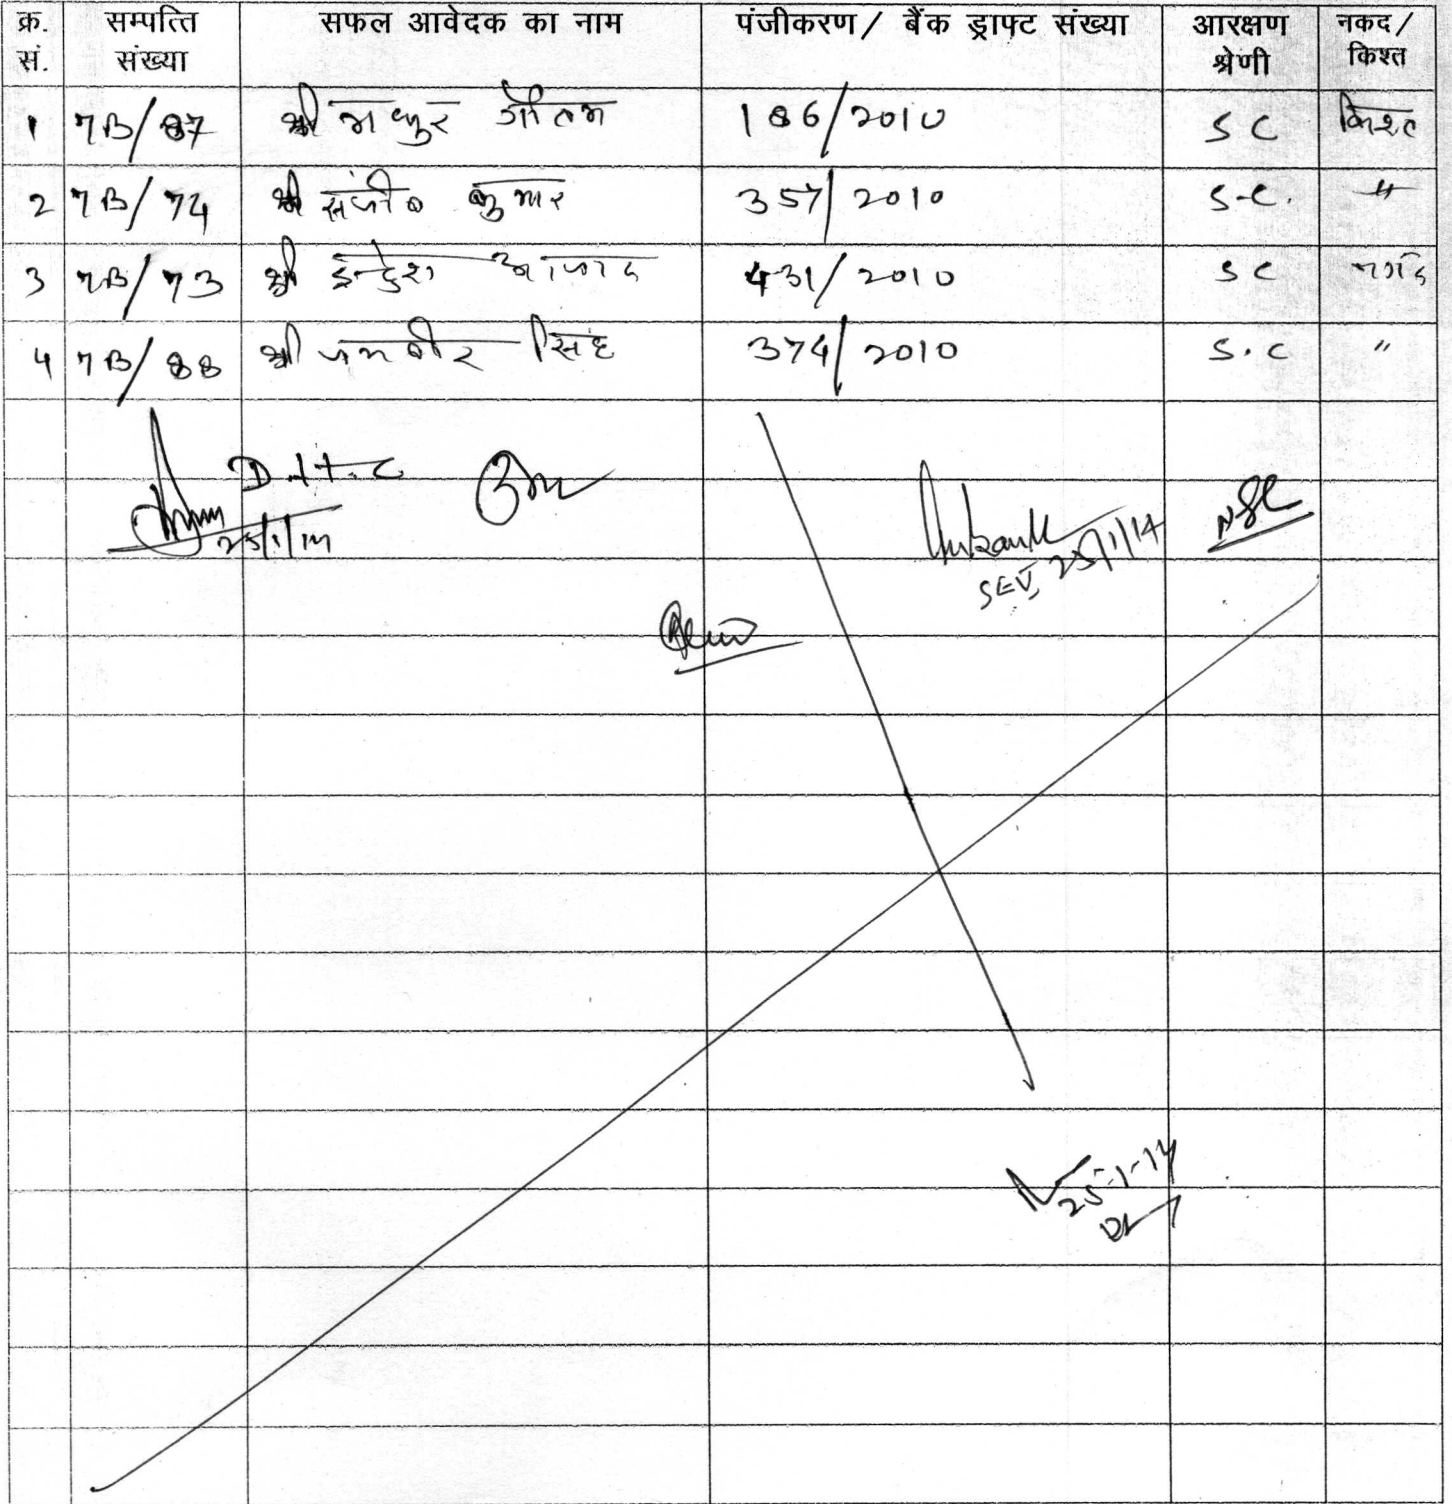 क्र. सं. सम्पत्ति संख्या सफल आवेदक का नाम पंजीकरण/ बैंक ड्राफ्ट संख्या आरक्षण श्रेणी नकद/ किश्त
1 7B/87 श्री मयुर गौतम 186/2010 SC किश्त
2 7B/74 श्री संजीव कुमार 357/2010 S.C. "
3 7B/73 श्री आजाद 431/2010 SC नगद
4 7B/88 श्री सिंह 374/2010 S.C "
25/1/14
SEV, 25/1/14
25-1-14